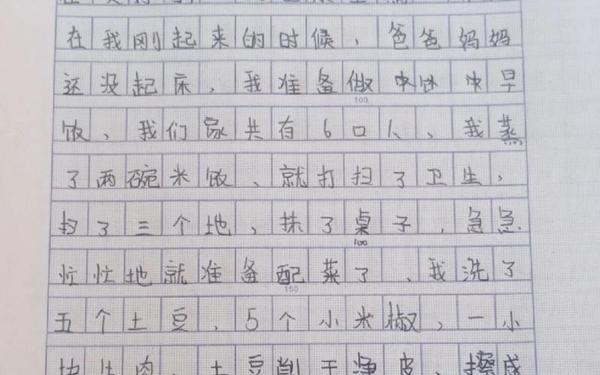 在我刚起来的时候，爸爸妈妈
还没起床，我准备做中早
饭、我们家共有6口人、我蒸
100
了两碗米饭、就打扫了卫生，
扫了三个地，抹了桌子，急急
100
忙忙地就准备配菜了、我洗了
150
五个土豆、5个小米椒，一小
块牛肉、土豆削干净皮、擦成